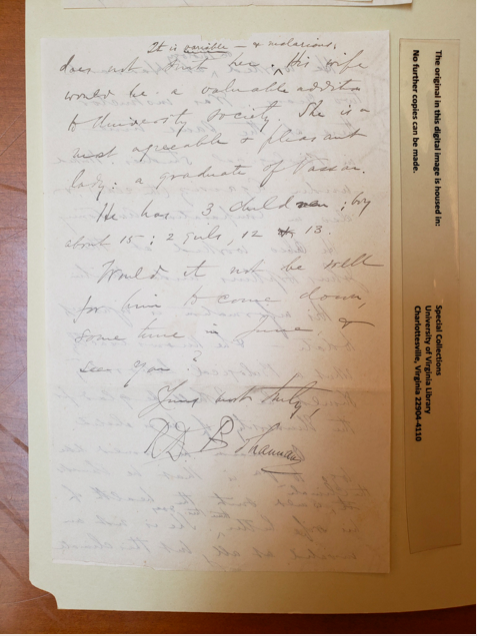 It is variable – & malarious.
does not suit her. ^ His wife
would be a valuable addition
to University Society. She is a
most agreeable & pleasant
lady; a graduate of Vassar.
He has 3 children; boy
about 15; 2 girls, 12 & 13.
Would it not be well
for him to come down,
some time in June &
see you?
Yours most truly,
The original in this digital image is housed in:
No further copies can be made.
Special Collections
University of Virginia Library
Charlottesville, Virginia 22904-4110